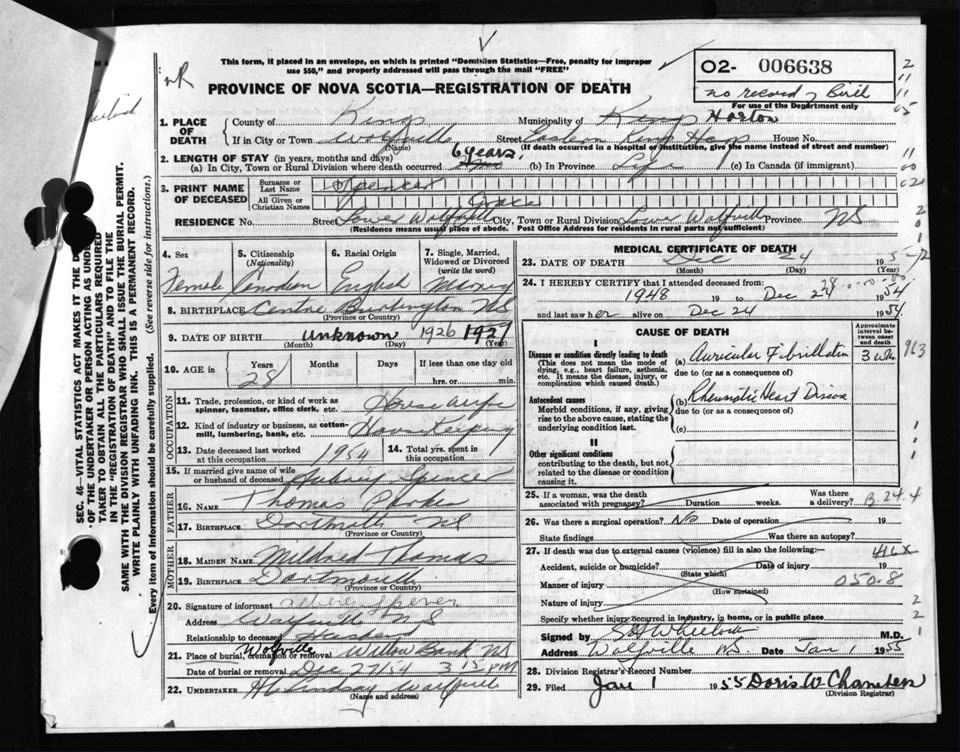 This form, if placed in an envelope, on which is printed "Dominion Statistics—Free, penalty for improper
use $50," and properly addressed will pass through the mail "FREE"
PROVINCE OF NOVA SCOTIA—REGISTRATION OF DEATH
O2- 006638
no record of Birth
For use of the Department only
1. PLACE OF DEATH
County of Kings Municipality of Kings Horton
If in City or Town Wolfville Street Eastern Kings Hosp House No.
(Name) (If death occurred in a hospital or institution, give the name instead of street and number)
2. LENGTH OF STAY (in years, months and days)
(a) In City, Town or Rural Division where death occurred 6 years, (b) In Province Life (c) In Canada (if immigrant)
3. PRINT NAME OF DECEASED
Surname or Last Name Spencer
All Given or Christian Names Grace
RESIDENCE No. Street Lower Wolfville City, Town or Rural Division Lower Wolfville Province NS
(Residence means usual place of abode. Post Office Address for residents in rural parts not sufficient)
4. Sex 5. Citizenship (Nationality) 6. Racial Origin 7. Single, Married, Widowed or Divorced (write the word)
Female Canadian English Married
8. BIRTHPLACE Centre Burlington NS
(Province or County)
9. DATE OF BIRTH Unknown 1926 1927
(Month) (Day) (Year)
10. AGE in Years Months Days If less than one day old
28 hrs. or min.
OCCUPATION
11. Trade, profession, or kind of work as spinner, teamster, office clerk, etc. Housewife
12. Kind of industry or business, as cotton-mill, lumbering, bank, etc. Housekeeping
13. Date deceased last worked at this occupation 1954 14. Total yrs. spent in this occupation
15. If married give name of wife or husband of deceased Aubrey Spencer
FATHER
16. NAME Thomas Parker
17. BIRTHPLACE Dartmouth NS
(Province or County)
MOTHER
18. MAIDEN NAME Mildred Thomas
19. BIRTHPLACE Dartmouth
(Province or County)
20. Signature of informant
Address Wolfville N S
Relationship to deceased Husband
21. Place of burial, cremation or removal Wolfville Willow Bank NS
Date of burial or removal Dec 27/54 3 15 PM
22. UNDERTAKER H C Lindsay Wolfville
(Name and address)
MEDICAL CERTIFICATE OF DEATH
23. DATE OF DEATH Dec 24 195
(Month) (Day) (Year)
24. I HEREBY CERTIFY that I attended deceased from:
1948 19 to Dec 24 1954
and last saw her alive on Dec 24 1954.
CAUSE OF DEATH
Approximate interval between onset and death
I
Disease or condition directly leading to death (a) Auricular Fibrillation 3 wks
(This does not mean the mode of dying, e.g., heart failure, asthenia, etc. It means the disease, injury, or complication which caused death.)
due to (or as a consequence of)
Antecedent causes (b) Rheumatic Heart Disease
Morbid conditions, if any, giving rise to the above cause, stating the underlying condition last.
due to (or as a consequence of)
(c)
II
Other significant conditions
contributing to the death, but not related to the disease or condition causing it.
25. If a woman, was the death associated with pregnancy? Duration weeks. Was there a delivery?
26. Was there a surgical operation? No Date of operation 19
State findings Was there an autopsy?
27. If death was due to external causes (violence) fill in also the following:—
Accident, suicide or homicide? Date of injury 19
(State which)
Manner of injury
(How sustained)
Nature of injury
Specify whether injury occurred in industry, in home, or in public place
Signed by M.D.
Address Wolfville NS Date Jan 1 1955
28. Division Registrar's Record Number
29. Filed Jan 1 1955 Doris W Chambers
(Division Registrar)
B 24.4
416X
050.8
963
SEC. 46—VITAL STATISTICS ACT MAKES IT THE D
OF THE UNDERTAKER OR PERSON ACTING AS UND
TAKER TO OBTAIN ALL THE PARTICULARS REQUIRED
IN THE "REGISTRATION OF DEATH" AND TO FILE THE
SAME WITH THE DIVISION REGISTRAR WHO SHALL ISSUE THE BURIAL PERMIT.
WRITE PLAINLY WITH UNFADING INK. THIS IS A PERMANENT RECORD.
Every item of information should be carefully supplied. (See reverse side for instructions.)